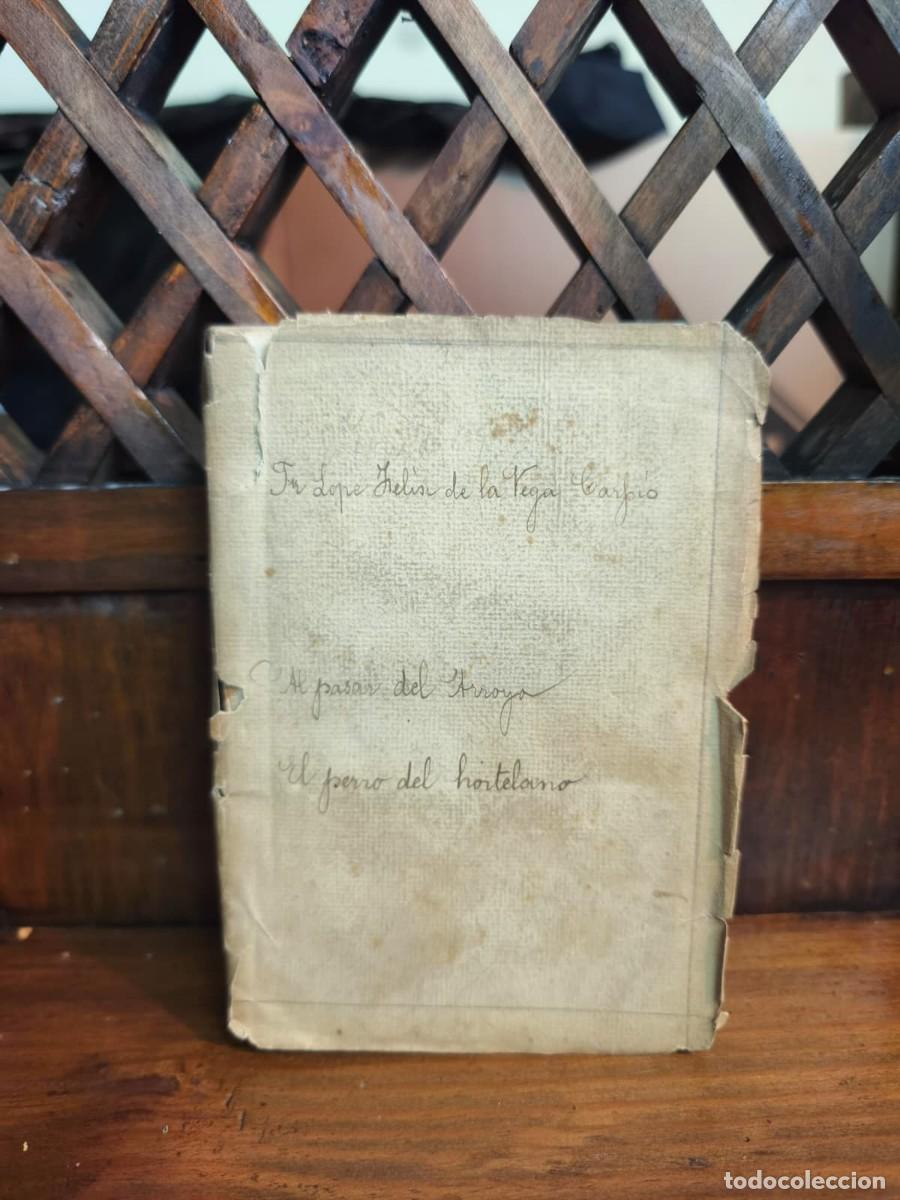 Fr Lope Felix de la Vega Carpio
Al pasar del Arroyo
El perro del hortelano
todocoleccion